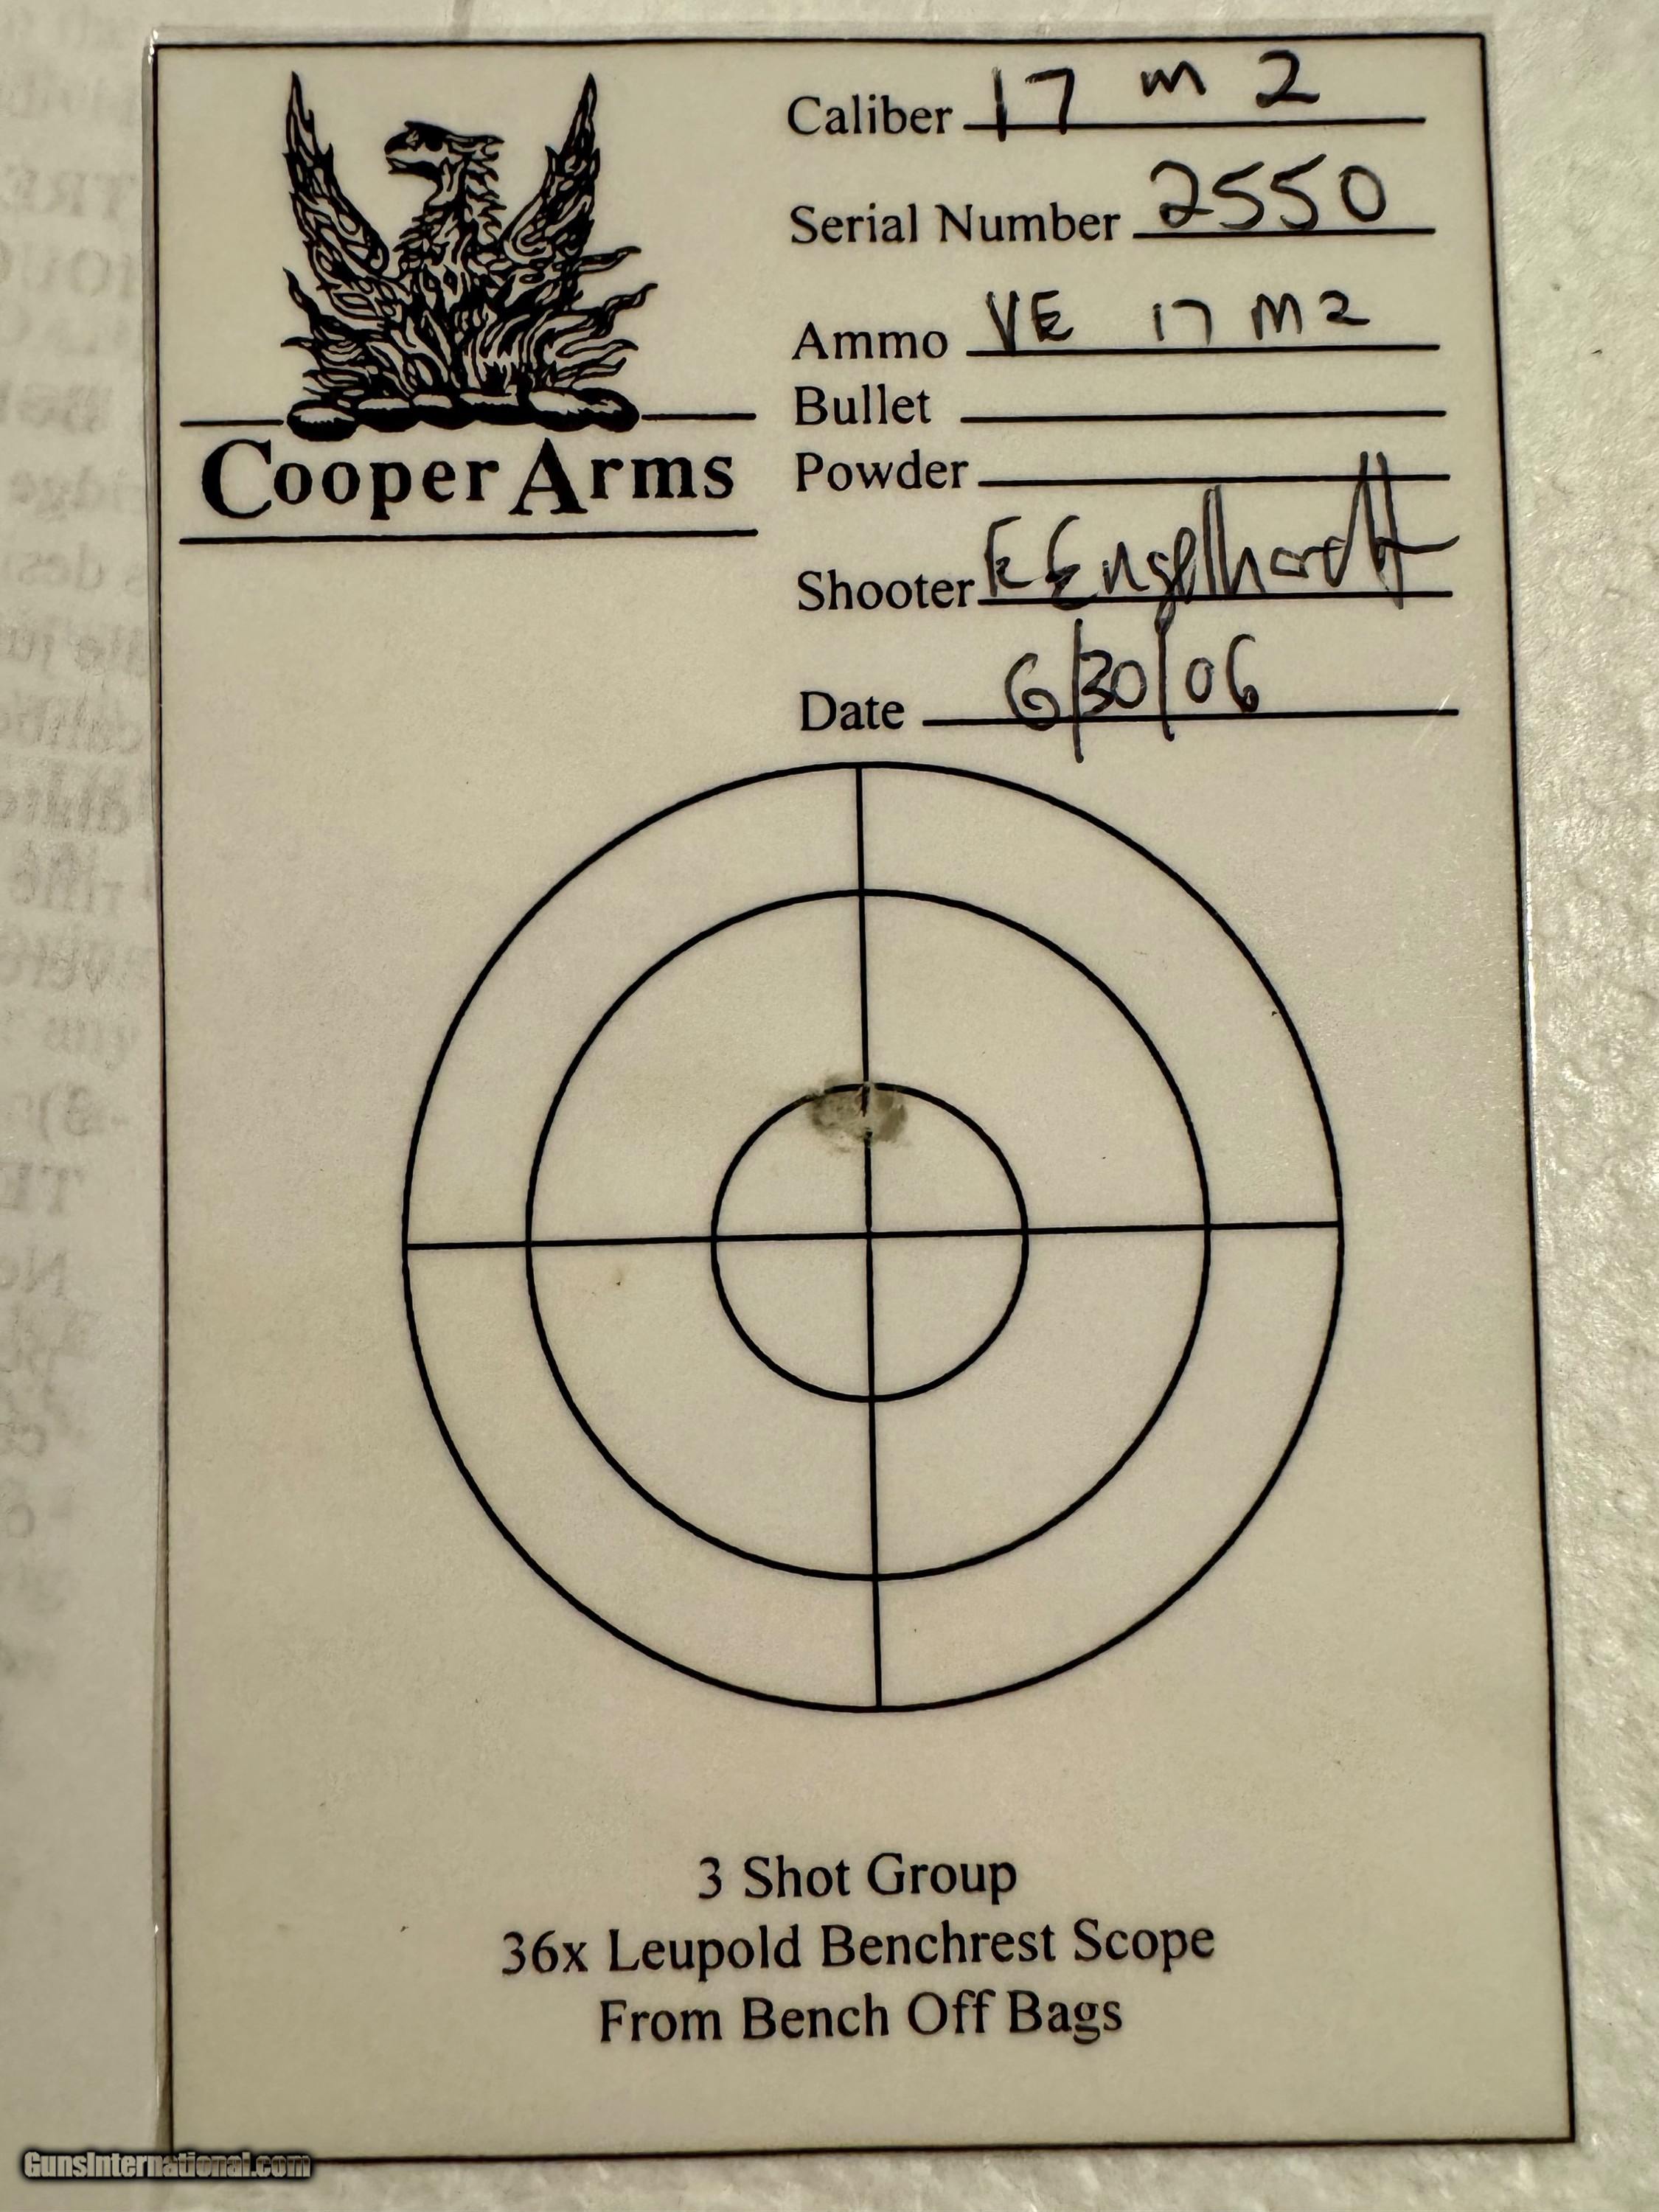 Caliber 17 m 2
Serial Number 2550
Ammo VE 17 M2
Bullet
Powder
Cooper Arms
Shooter E Engelhardt
Date 6/30/06
3 Shot Group
36x Leupold Benchrest Scope
From Bench Off Bags
GunsInternational.com